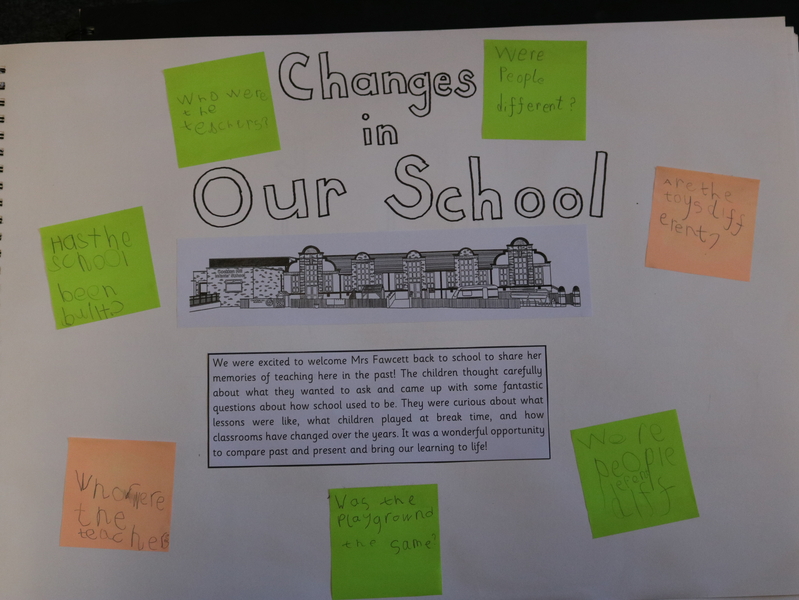 Changes
in
Our School
Who were
the
teachers?
Were
People
different?
Are the
toys diff
erent?
Has the
school
been
built?
We were excited to welcome Mrs Fawcett back to school to share her
memories of teaching here in the past! The children thought carefully
about what they wanted to ask and came up with some fantastic
questions about how school used to be. They were curious about what
lessons were like, what children played at break time, and how
classrooms have changed over the years. It was a wonderful opportunity
to compare past and present and bring our learning to life!
Who were
the
teacher
Was the
Playground
the same?
Were
people
diff